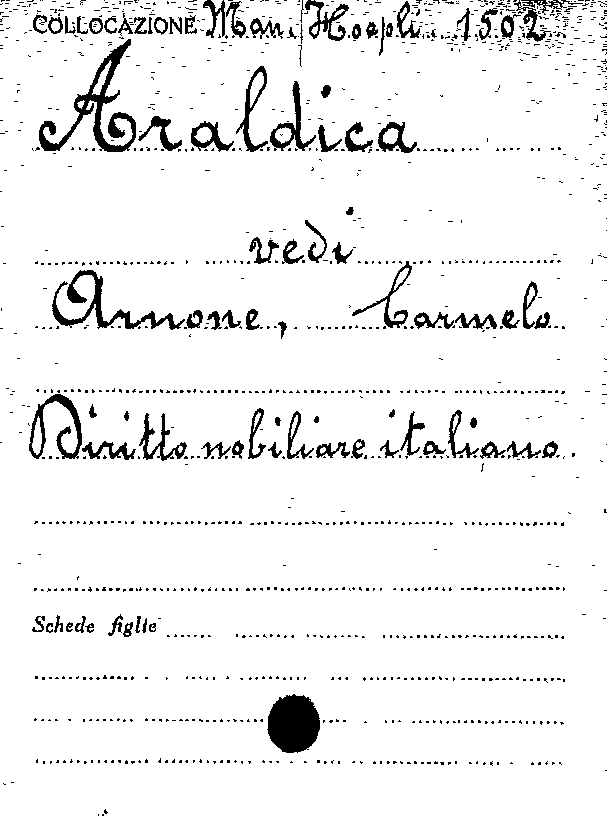 COLLOCAZIONE Man. Hoepli. 1502
Araldica
vedi
Arnone, Carmelo
Diritto nobiliare italiano.
Schede figlie